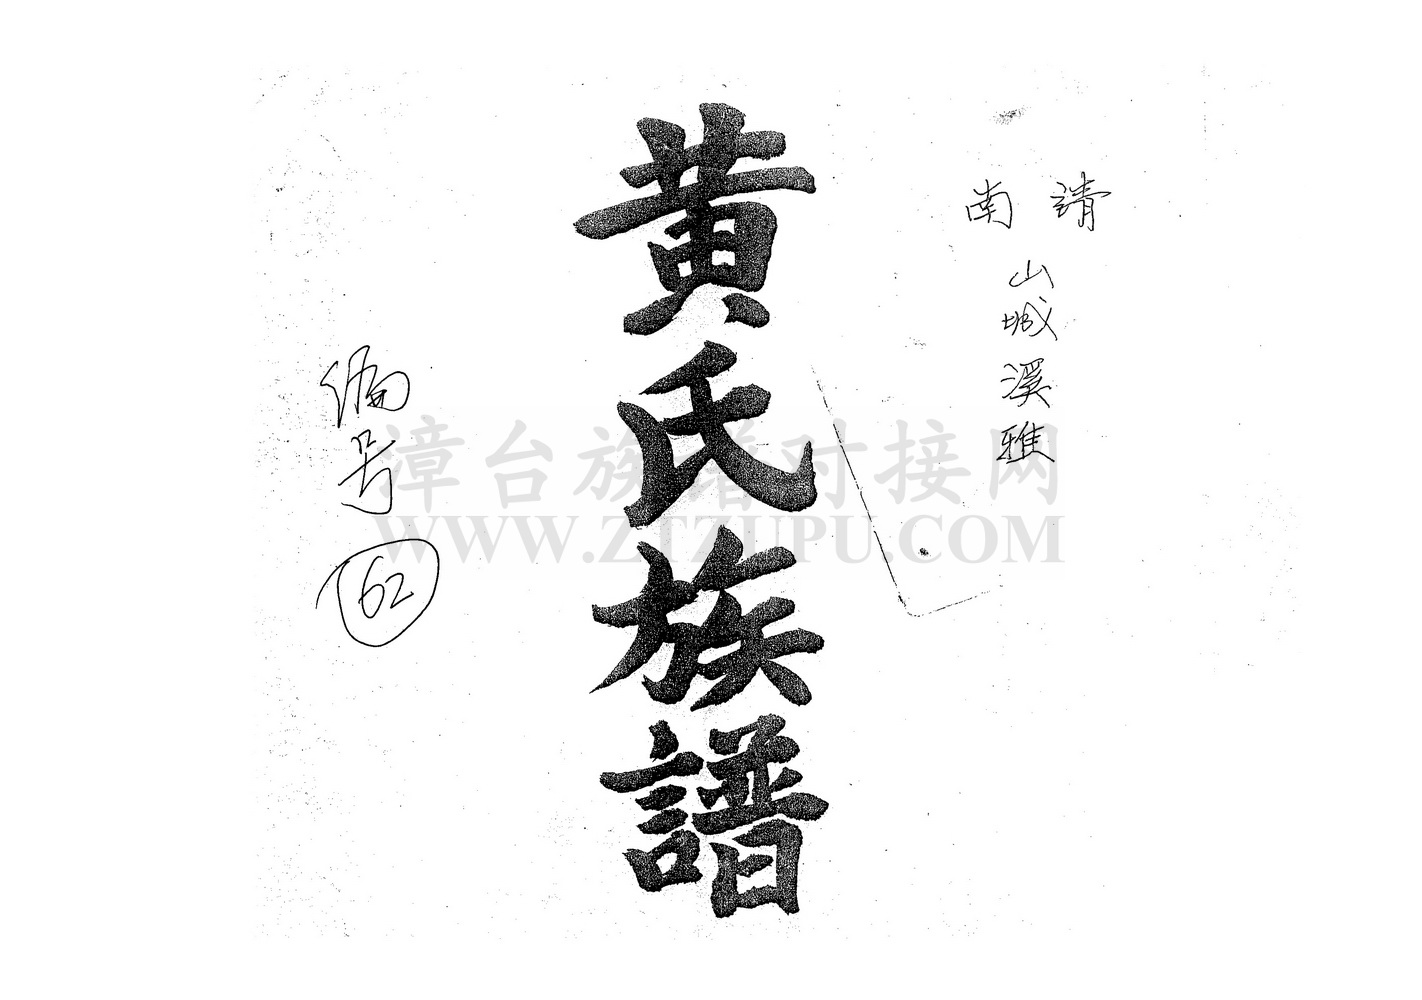 南靖
山城溪雅
黄氏族譜
编号 62
漳台族谱对接网
WWW.ZTZUPU.COM